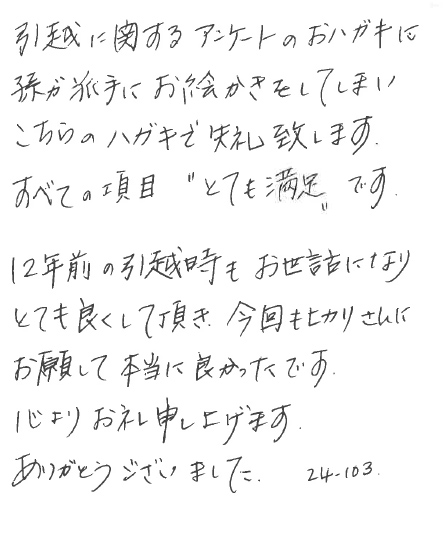 引越に関するアンケートのおハガキに
孫が派手にお絵かきをしてしまい
こちらのハガキで失礼致します.
すべての項目 "とても満足" です.
12年前の引越時もお世話になり
とても良くして頂き 今回もヒカリさんに
お願して本当に良かったです.
心よりお礼申し上げます.
ありがとうございました. 24-103.